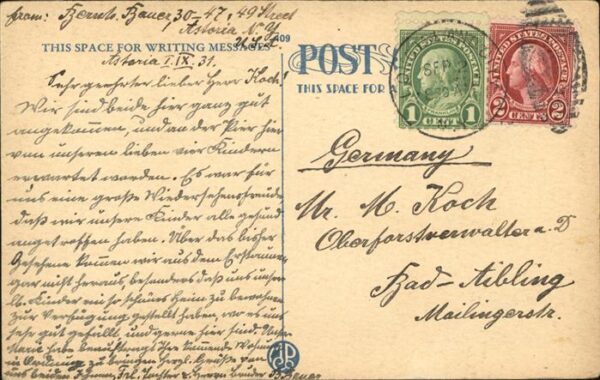 from: Bernh. Bauer 30-47, 49 Street
Astoria N.Y.
U.S.A.
THIS SPACE FOR WRITING MESSAGES
409
POST
THIS SPACE FOR A
Astoria 1.IX.31.
Sehr geehrter lieber Herr Koch!
Wir sind beide hier ganz gut
angekommen, und an der Pier hier
von unseren lieben vier Kindern
erwartet worden. Es war für
uns eine große Wiedersehensfreude
daß wir unsere Kinder alle gesund
angetroffen haben. Über das bisher
Gesehene kommen wir aus dem Erstaunen
gar nicht heraus, besonders daß uns unsere
lb. Kinder ein so schönes Heim zu bewohnen
zur Verfügung gestellt haben, wo es uns
sehr gut gefällt und gerne hier sind.
Marie habe beauftragt Ihre
in Ordnung zu bringen Herzl. Grüße von
uns beiden Ihnen, Frl. Tochter u. Herrn Bruder B. Bauer
UNITED STATES POSTAGE
1 CENT 1
SEP
UNITED STATES POSTAGE
2 CENTS 2
Germany
Mr. M. Koch
Oberforstverwalter a. D
Bad-Aibling
Mailingerstr.